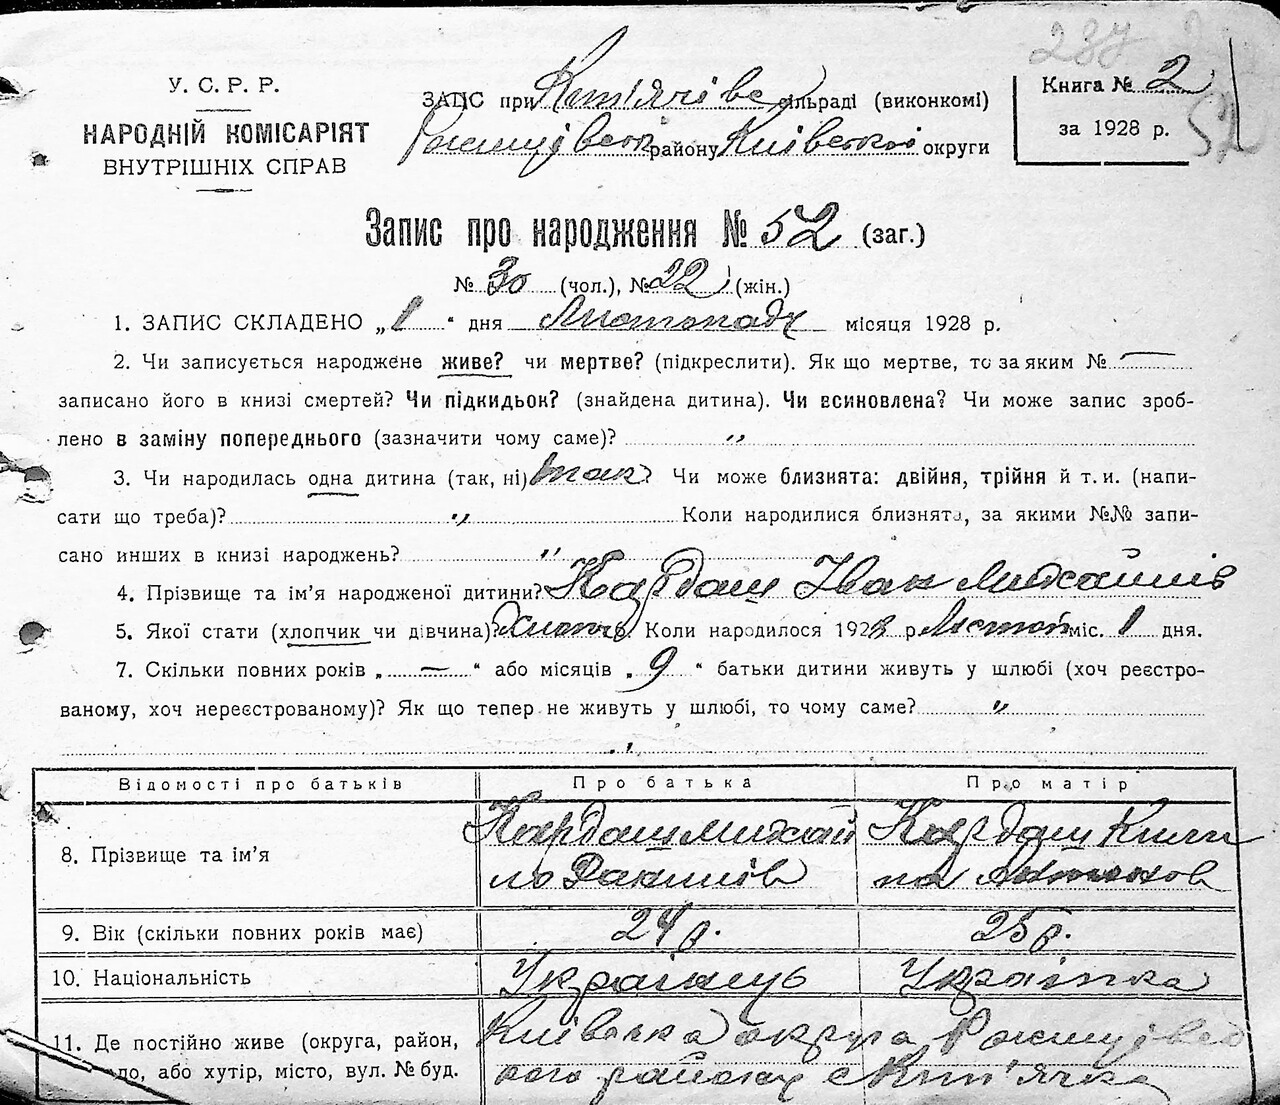 287
У. С. Р. Р.
НАРОДНІЙ КОМІСАРІЯТ
ВНУТРІШНІХ СПРАВ
ЗАПС при Кип'ячівс сільраді (виконкомі)
району Київської округи
Книга № 2
за 1928 р.
52
Запис про народження № 52 (заг.)
№ 30 (чол.), № 22 (жін.)
1. ЗАПИС СКЛАДЕНО „1“ дня Листопаду місяця 1928 р.
2. Чи записується народжене живе? чи мертве? (підкреслити). Як що мертве, то за яким № —
записано його в книзі смертей? Чи підкидьок? (знайдена дитина). Чи всиновлена? Чи може запис зроб-
лено в заміну попереднього (зазначити чому саме)? „
3. Чи народилась одна дитина (так, ні) так? Чи може близнята: двійня, трійня й т. и. (напи-
сати що треба)? „ Коли народилися близнята, за якими №№ запи-
сано инших в книзі народжень? „
4. Прізвище та ім'я народженої дитини? Кардаш Іван Михайлів
5. Якої стати (хлопчик чи дівчина)? Хлопч. Коли народилося 1928 р. Листоп міс. 1 дня.
7. Скільки повних років „—“ або місяців „9“ батьки дитини живуть у шлюбі (хоч реєстро-
ваному, хоч нереєстрованому)? Як що тепер не живуть у шлюбі, то чому саме? „
„
Відомості про батьків Про батька Про матір
8. Прізвище та ім'я
Кардаш Михай
ло
Кардаш Кили
на
9. Вік (скільки повних років має) 24 р. 25 р.
10. Національність Українець Українка
11. Де постійно живе (округа, район,
село, або хутір, місто, вул. № буд.
Київська округа
кого району с Кип'ячка